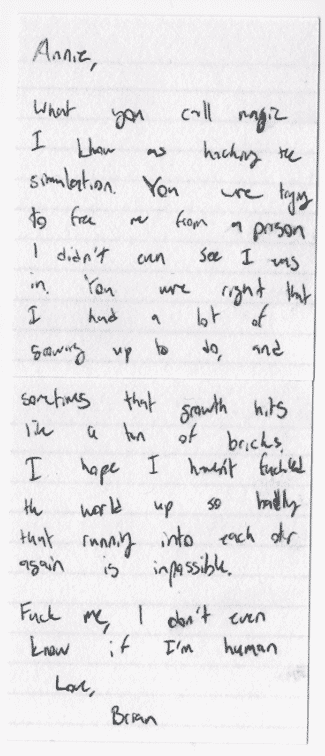 Annie,
What you call magic
I know as hacking the
simulation. You were trying
to free me from a prison
I didn't even see I was
in. You were right that
I had a lot of
growing up to do, and
sometimes that growth hits
like a ton of bricks.
I hope I haven't fucked
the world up so badly
that running into each other
again is impossible.
Fuck me, I don't even
know if I'm human
Love,
Brian